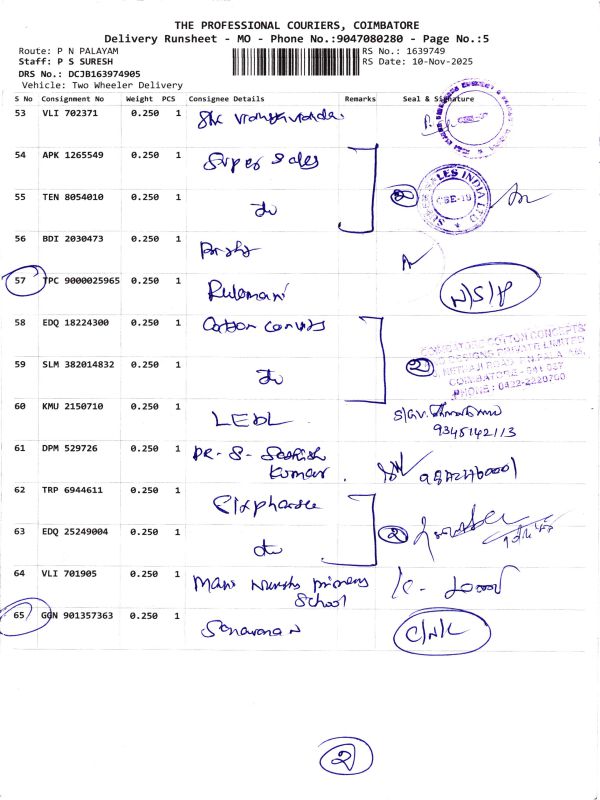 THE PROFESSIONAL COURIERS, COIMBATORE
Delivery Runsheet - MO - Phone No.:9047080280 - Page No.:5
Route: P N PALAYAM
RS No.: 1639749
Staff: P S SURESH
RS Date: 10-Nov-2025
DRS No.: DCJB163974905
Vehicle: Two Wheeler Delivery
S No Consignment No Weight PCS Consignee Details Remarks Seal & Signature
53 VLI 702371 0.250 1
54 APK 1265549 0.250 1 Super Sales
SUPER SALES INDIA LTD
CBE-18
55 TEN 8054010 0.250 1 do 2
56 BDI 2030473 0.250 1
57 TPC 9000025965 0.250 1 Rulemani N/S/P
58 EDQ 18224300 0.250 1 Cotton
COIMBATORE COTTON CONCEPTS
DESIGNS PRIVATE LIMITED
COIMBATORE - 641 037
PHONE: 0422-2220700
59 SLM 382014832 0.250 1 do 2
60 KMU 2150710 0.250 1 LEDL
9345142113
61 DPM 529726 0.250 1 DR. S. Sathish
Kumar
62 TRP 6944611 0.250 1
63 EDQ 25249004 0.250 1 do 2
64 VLI 701905 0.250 1 Mani Nursery primary
School
65 GGN 901357363 0.250 1 Saravanan C/N/L
2